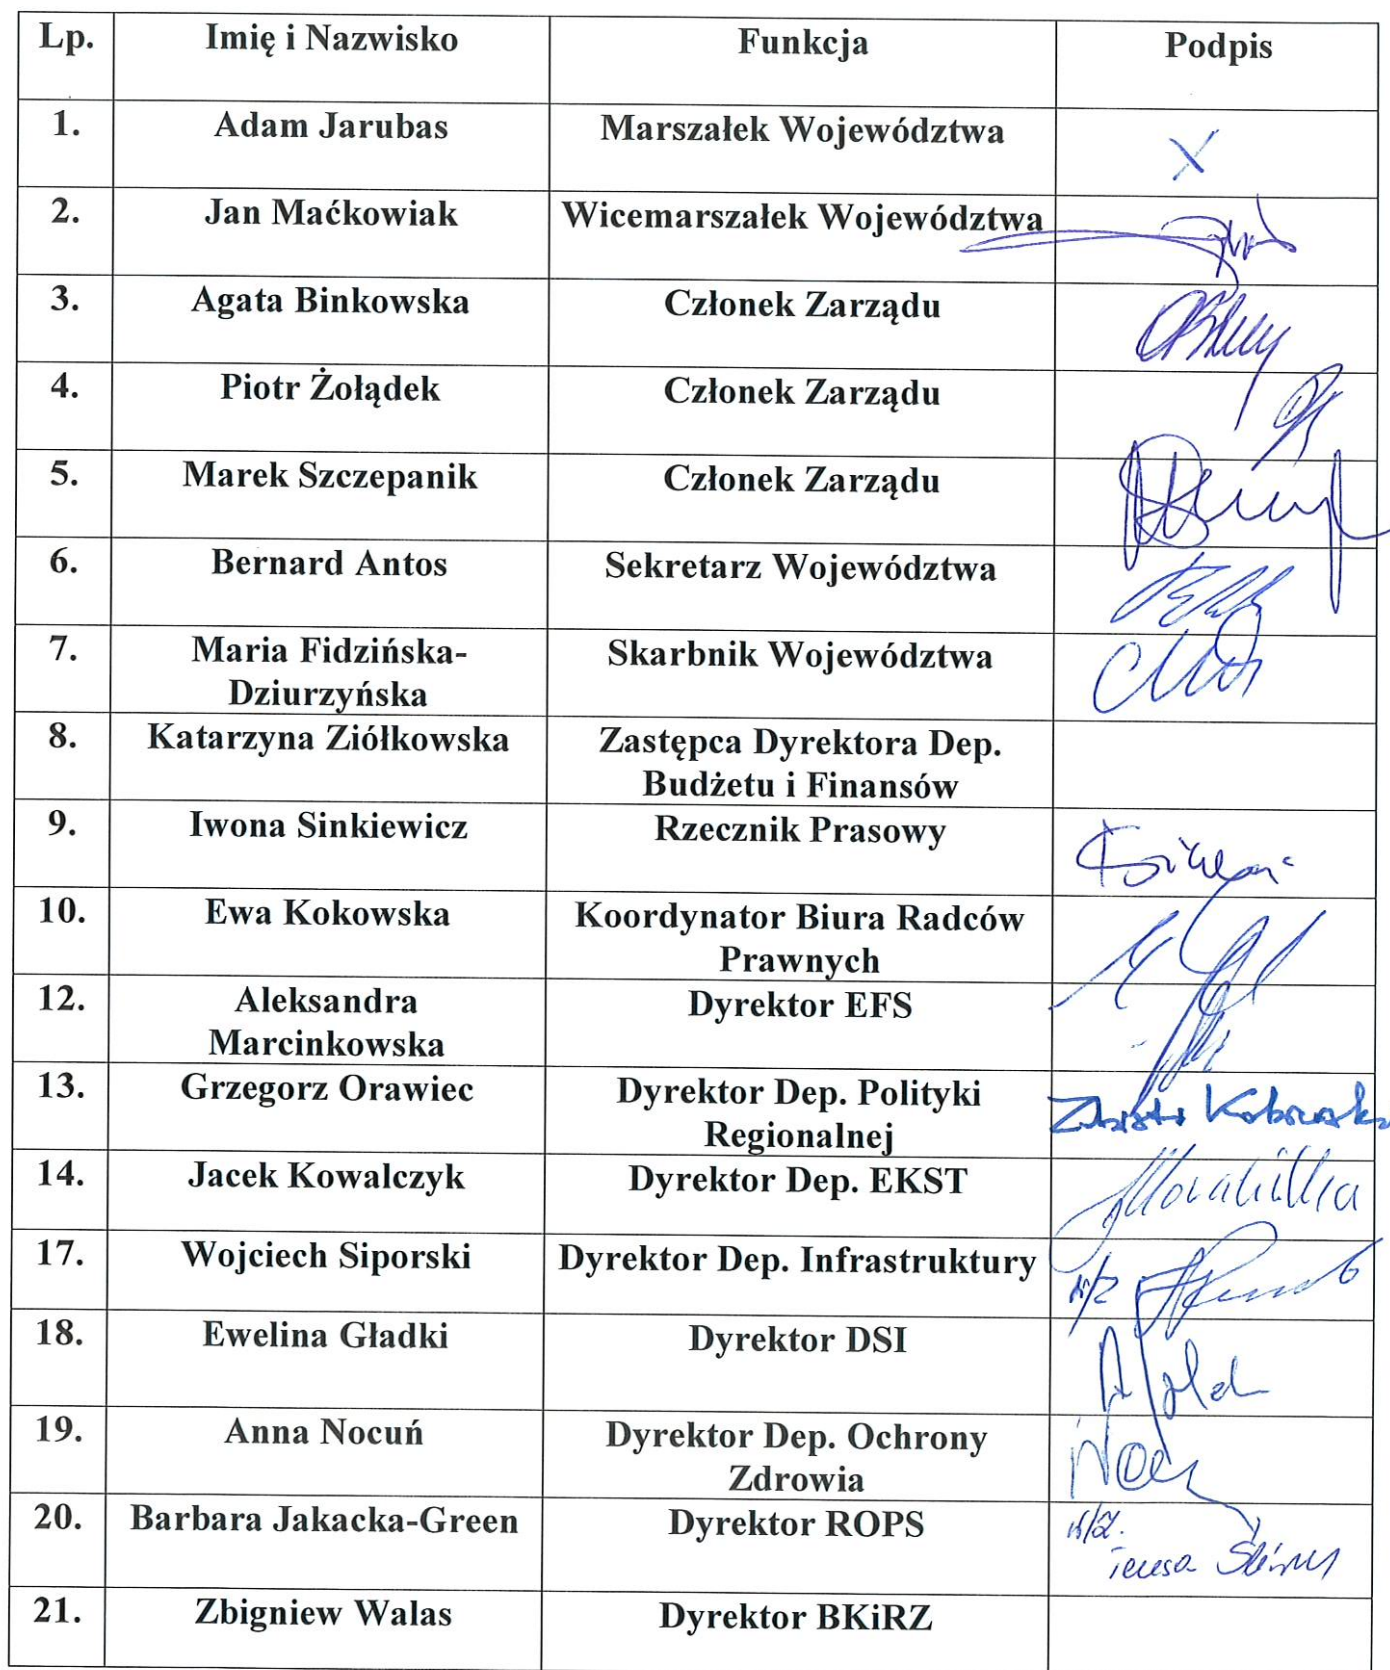 Lp. Imię i Nazwisko Funkcja Podpis
1. Adam Jarubas Marszałek Województwa X
2. Jan Maćkowiak Wicemarszałek Województwa
3. Agata Binkowska Członek Zarządu
4. Piotr Żołądek Członek Zarządu
5. Marek Szczepanik Członek Zarządu
6. Bernard Antos Sekretarz Województwa
7. Maria Fidzińska- Skarbnik Województwa
Dziurzyńska
8. Katarzyna Ziółkowska Zastępca Dyrektora Dep.
Budżetu i Finansów
9. Iwona Sinkiewicz Rzecznik Prasowy
10. Ewa Kokowska Koordynator Biura Radców
Prawnych
12. Aleksandra Dyrektor EFS
Marcinkowska
13. Grzegorz Orawiec Dyrektor Dep. Polityki
Regionalnej
14. Jacek Kowalczyk Dyrektor Dep. EKST
17. Wojciech Siporski Dyrektor Dep. Infrastruktury w/z
18. Ewelina Gładki Dyrektor DSI
19. Anna Nocuń Dyrektor Dep. Ochrony
Zdrowia
20. Barbara Jakacka-Green Dyrektor ROPS w/z.
Teresa
21. Zbigniew Walas Dyrektor BKiRZ